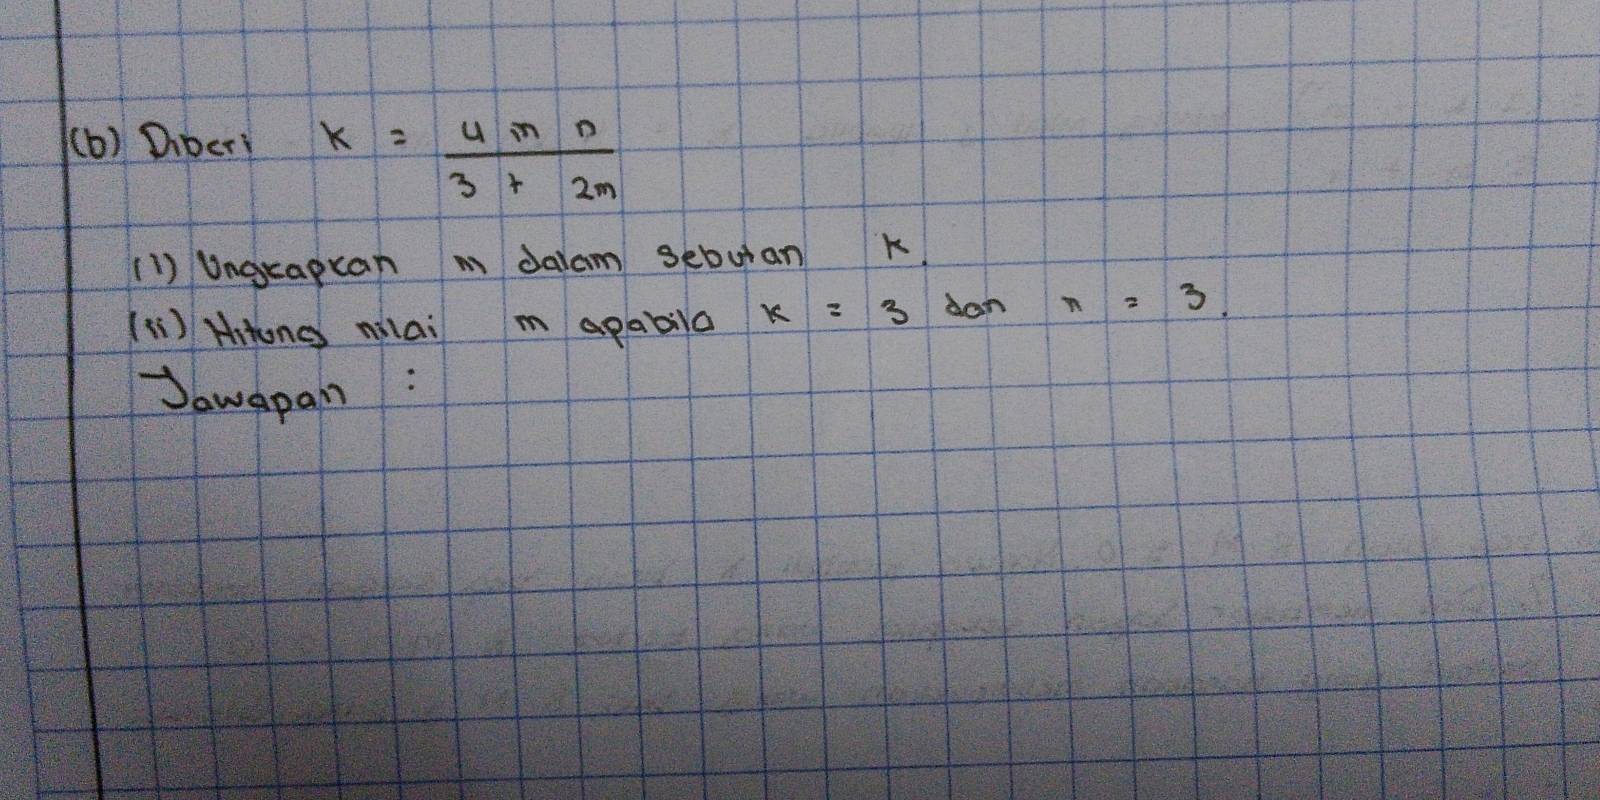 (b) Diberi k = 4 m n
3 + 2m
(i) Ungkapkan m dalam sebutan k.
(ii) Hitung nilai m apabila k = 3 dan n = 3.
Jawapan :